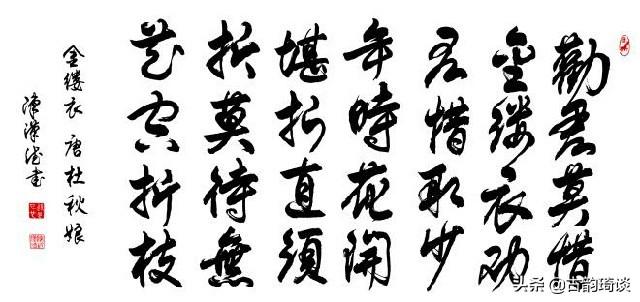 勸君莫惜
金缕衣劝
君惜取少
年時花開
堪折直須
折莫待無
花空折枝
金缕衣 唐 杜秋娘
头条 @古韵琦谈